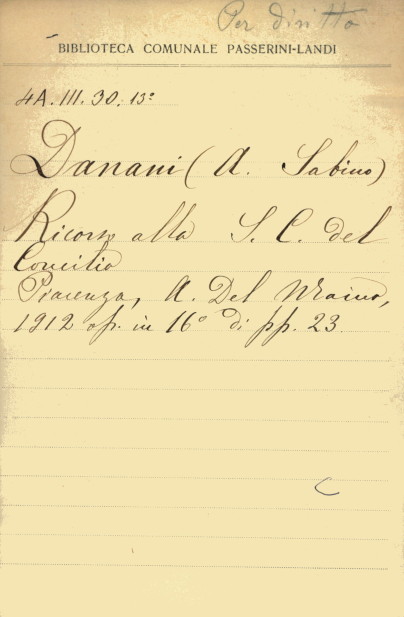 Per diritto
BIBLIOTECA COMUNALE PASSERINI-LANDI
4A. III. 30. 13º
Danani (A. Sabino)
Ricorso alla S. C. del
Concilio
Piacenza, A. Del Maino,
1912 op. in 16º di pp. 23